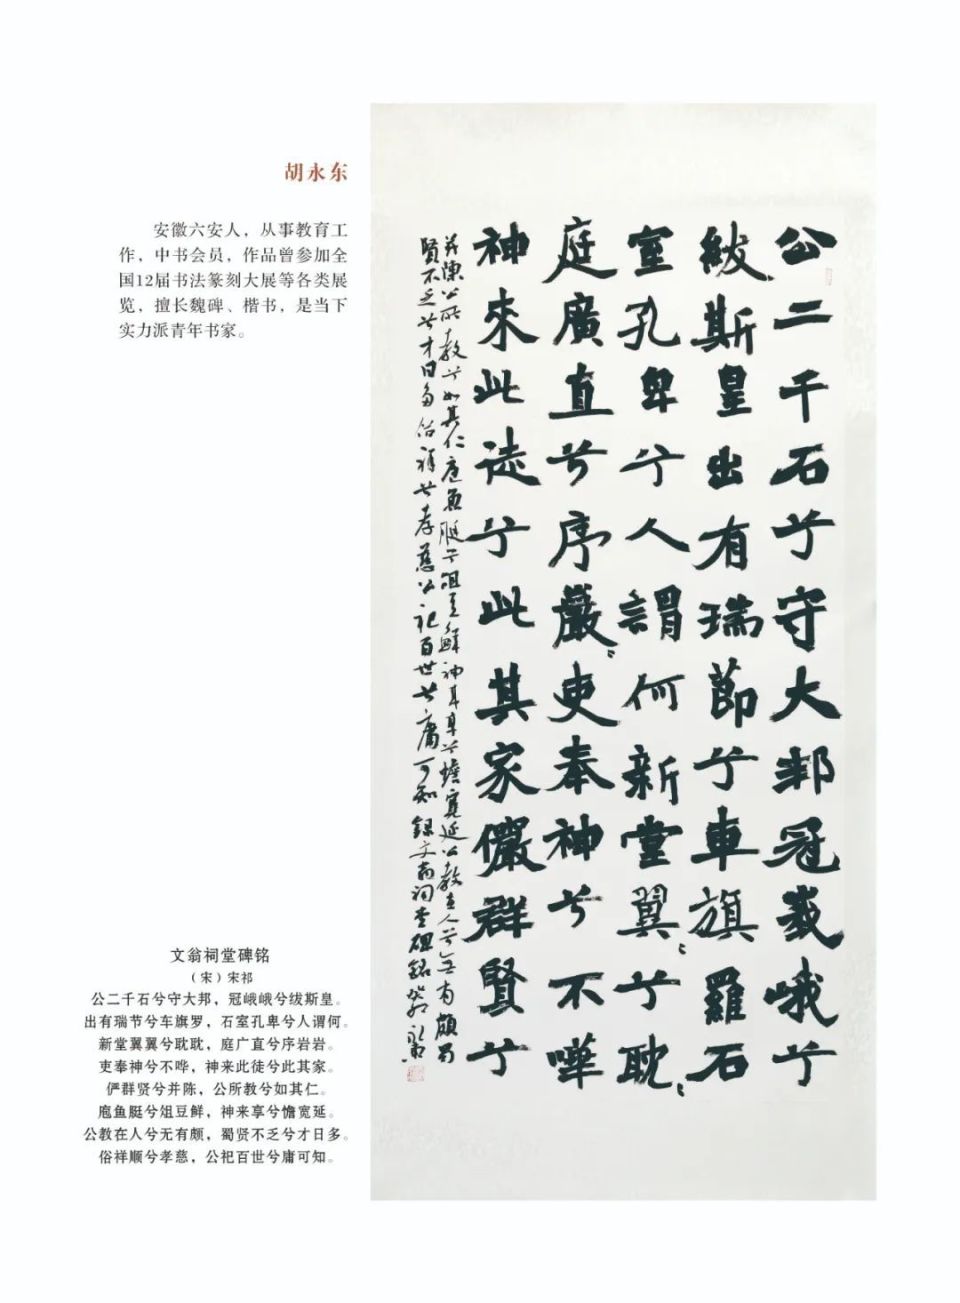 胡永东
安徽六安人，从事教育工
作，中书会员，作品曾参加全
国12届书法篆刻大展等各类展
览，擅长魏碑、楷书，是当下
实力派青年书家。
公二千石兮守大邦冠峩峨兮
紱斯皇出有瑞節兮車旗羅石
室孔卑兮人謂何新堂翼〻兮耽〻
庭廣直兮序嚴〻吏奉神兮不嘩
神來此徒兮此其家儼群賢兮
并陳公所教兮如其仁庖魚艇兮俎豆鮮神來享兮憺寬延公教在人兮無有頗蜀
賢不乏兮才日多俗祥兮孝慈公祀百世兮庸可知錄文翁祠堂碑銘癸卯永東
文翁祠堂碑铭
（宋）宋祁
公二千石兮守大邦，冠峨峨兮绂斯皇。
出有瑞节兮车旗罗，石室孔卑兮人谓何。
新堂翼翼兮耽耽，庭广直兮序岩岩。
吏奉神兮不哗，神来此徒兮此其家。
俨群贤兮并陈，公所教兮如其仁。
庖鱼艇兮俎豆鲜，神来享兮憺宽延。
公教在人兮无有颇，蜀贤不乏兮才日多。
俗祥顺兮孝慈，公祀百世兮庸可知。